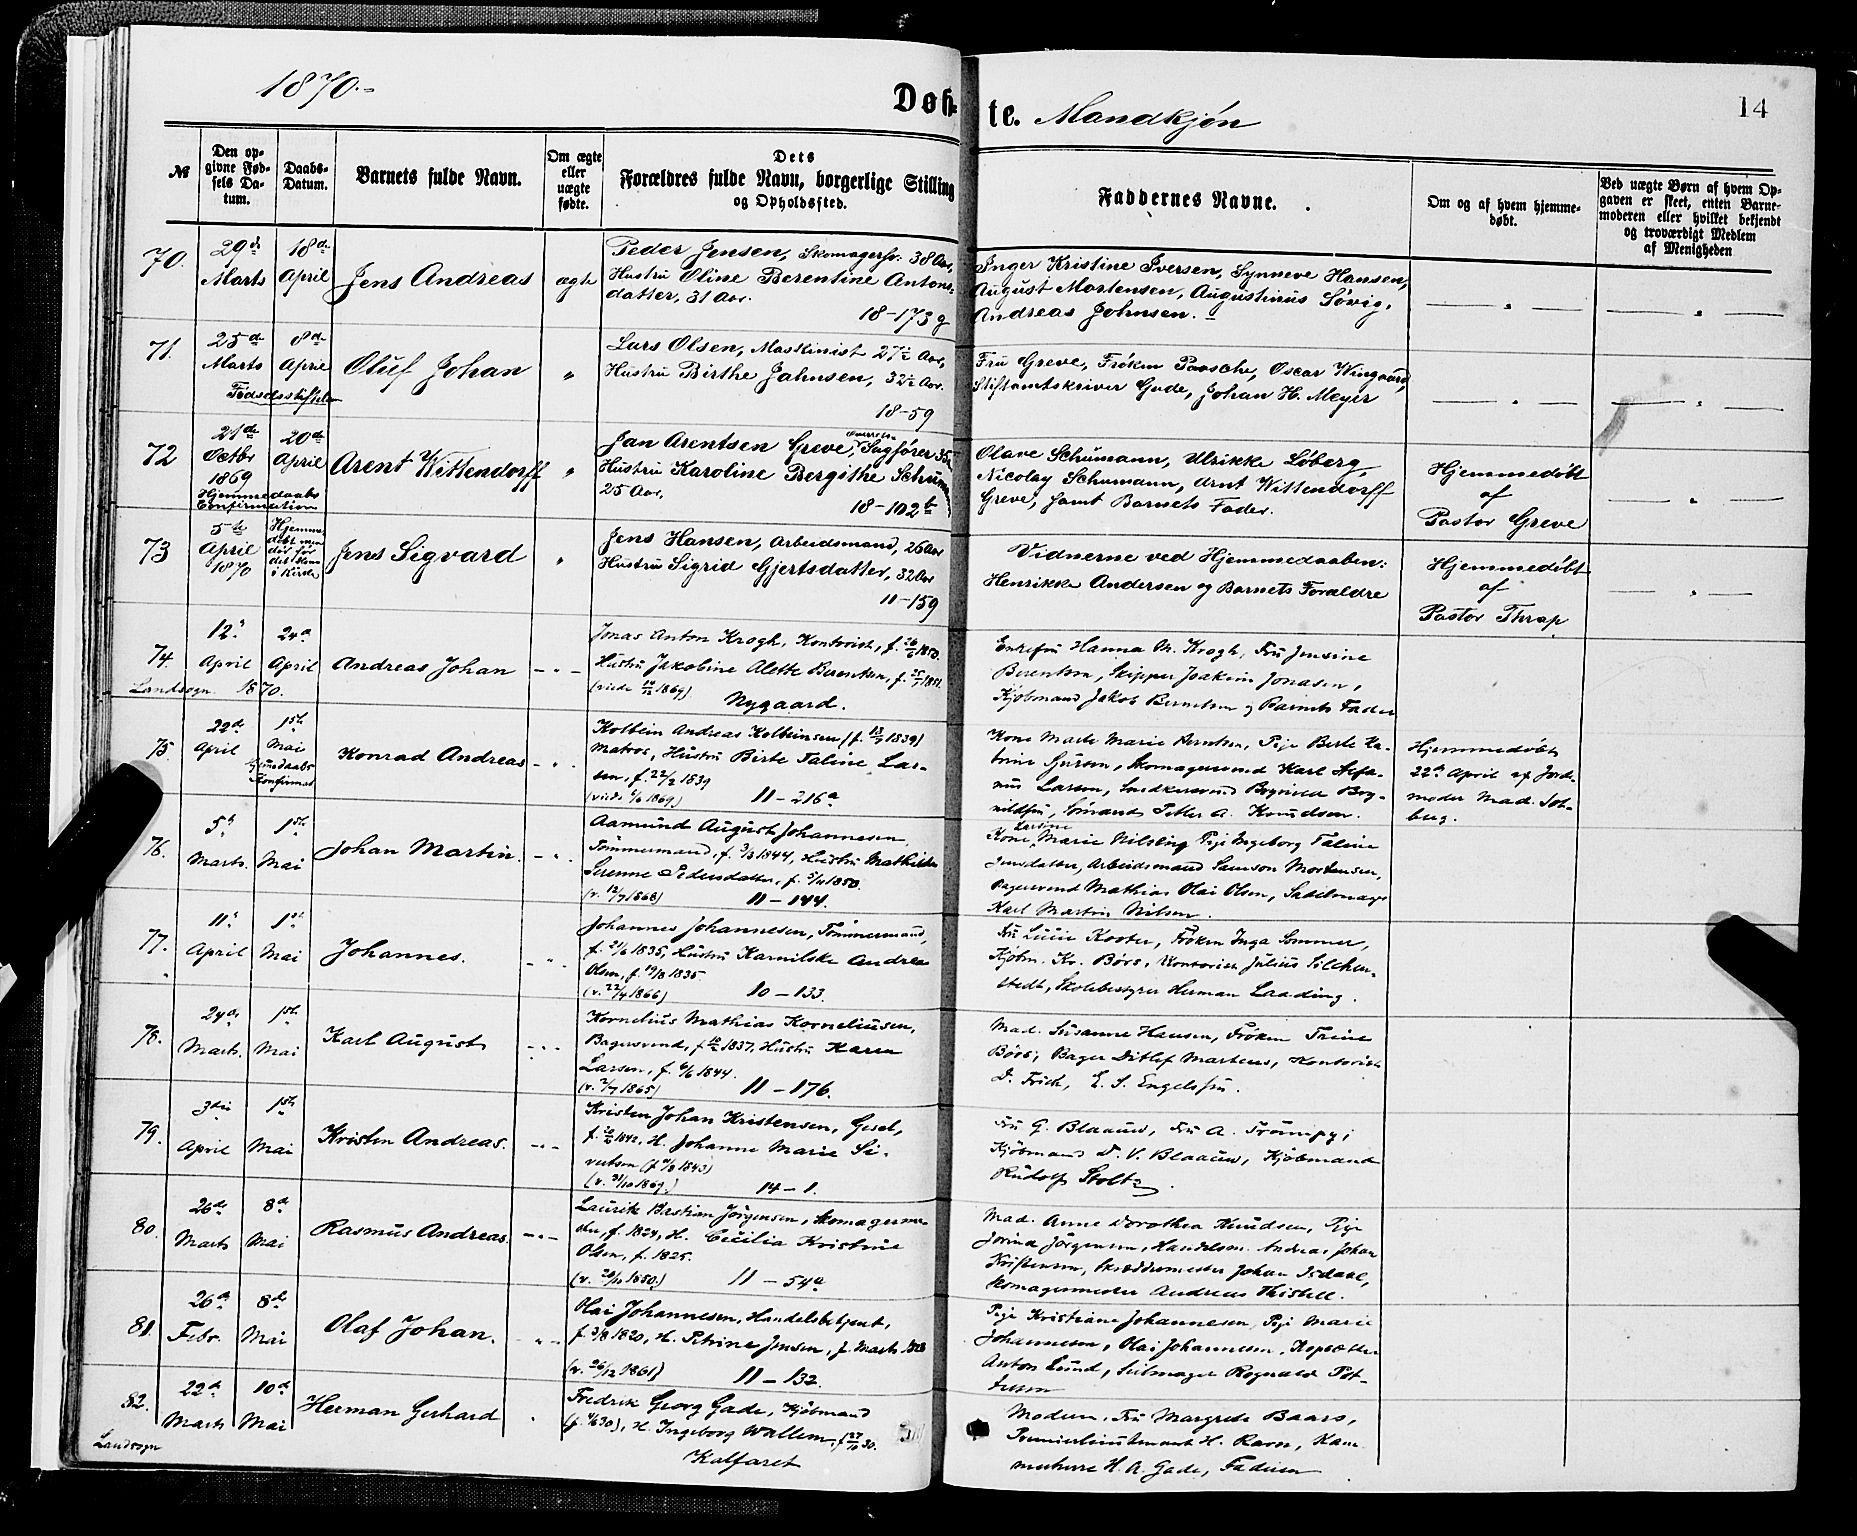 1870.
Døb-
te. Mandkjøn
14
№
Den op-
givne Fød-
sels Da-
tum.
Daabs-
Datum.
Barnets fulde Navn.
Om ægte
eller
uægte
fødte.
Dets
Forældres fulde Navn, borgerlige Stilling
og Opholdssted.
Faddernes Navne.
Om og af hvem hjemme-
døbt.
Ved uægte Børn af hvem Op-
gaven er skeet, enten Barne-
moderen eller hvilket bekjendt
og troværdigt Medlem
af Menigheden
70.
29de
Marts
18de
April
Jens Andreas
ægte
Peder Jensen, Skomagersv: 38 Aar,
Hustru Oline Berentine Antons-
datter, 31 Aar.
18-173 g
Inger Kristine Iversen, Synneve Hansen,
August Mortensen, Augustinus Søvig,
Andreas Johnsen.
71.
25de
Marts
8de
April
Fødselsstiftelsen
Oluf Johan
"
Lars Olsen, Maskinist 27½ Aar,
Hustru Birthe Jahnsen, 32½ Aar.
18-59
Fru Greve, Frøken Paasche, Oscar Wingaard,
Stiftamtskriver Gude, Johan H. Meyer
72
21de
Octbr
1869
20de
April
Hjemmedaabs
Confirmation
Arent Wittendorff
"
Jan Arentsen Greve, Sagfører 35
Hustru Karoline Bergithe Schumann
25 Aar,
18-102b
Olave Schumann, Ulrikke Løberg,
Nicolay Schumann, Arnt Wittendorff
Greve, samt Barnets Fader.
Hjemmedøbt
af
Pastor Greve
73
5te
April
1870
Hjemme
døbt men
død før
det kom
i Kirke
Jens Sigvard
"
Jens Hansen, Arbeidsmand, 26 Aar
Hustru Sigrid Gjertsdatter, 32 Aar
11-159
Vidnerne ved Hjemmedaaben:
Henrikke Andersen og Barnets Forældre
Hjemmedøbt
af
Pastor Thrap
74.
12'
April
24d
April
Landsogn 1870.
Andreas Johan
Jonas Anton Krogh, Kontorist, f. 26/6 1850.
Hustru Jakobine Alette Berentsen, f. 25/7 1851.
(viede 14/12 1869)
Nygaard.
Enkefru Hanna M. Krogh, Fru Jensine
Berentsen, Skipper Joakim Jonasen,
Kjøbmand Jakob Berentsen og Barnets Fader
75.
22de
April
1ste
Mai
Hjemmedaabs
Konfirmat
Konrad Andreas
Kolbein Andreas Kolbeinsen (f. 13/7 1839)
Matros, Hustru Birte Taline Lar-
sen, f. 22/2 1839
(viede 6/6 1869.)
11-216a
Kone Marte Marie Berntsen, Pige Berte Ka-
trine Gursen, Skomagersvend Karl Stefa-
nus Larsen, Snedkersvend Bogvild Bog-
vildsen, Sømand Petter A. Knudsen.
Hjemmedøbt
22de April af Jord-
moder Mad. Sol-
berg.
76.
5te
Marts.
1ste
Mai
Johan Martin.
Aamund August Johannesen
Tømmermand, f. 3/3 1844, Hustru Mathilde
Serenne Pedersdatter, f. 5/11 1850.
(v. 12/7 1868)
11-144.
Kone Larsine Marie Nilsen, Pige Ingeborg Taline
Jensdatter, Arbeidsmand Samson Mortensen,
Bagersvend Mathias Olai Olsen, Sadelmager
Karl Martin Nilsen.
77.
11'
April
1ste
Mai
Johannes.
Johannes Johannesen, Tømmermand,
f. 21/6 1835, Hustru Karnilske Andrea
Olsen, f. 19/8 1835
(v. 22/4 1866)
10-133.
Fru Lucie Koster, Frøken Inga Sommer,
Kjøbm. Kr. Børs, Kontorist Julius Silchen-
stedt, Skolebestyrer Herman Laading.
78.
24de
Marts.
1ste
Mai
Karl August
Kornelius Mathias Korneliusen,
Bagersvend, f. 18/2 1837, Hustru Karen
Larsen, f. 6/6 1844.
(v. 2/7 1865)
11-176.
Mad. Susanne Hansen, Frøken Trine
Børs, Bager Ditlef Martens, Kontorist
D. Frich, E. S. Engelsen.
79.
3die
April
1ste
Mai
Kristen Andreas.
Kristen Johan Kristensen, Gesel,
f. 10/2 1842, H. Johanne Marie Si-
vertsen (f. 9/8 1843)
(v. 31/10 1869.)
14-1.
Fru G. Blaauw, Fru A. Trumpy,
Kjøbmand D. V. Blaauw, Kjøbmand
Rudolf Stoltz.
80.
26de
Marts
8de
Mai
Rasmus Andreas.
Laurits Bastian Jørgensen, Skomagerme-
ster, f. 1824, H. Cecilia Kristine
Olsen, f. 1825.
(v. 20/10 1850.)
11-54a
Mad. Anne Dorothea Knudsen, Pige
Jorina Jørgensen, Handelsm. Andreas Johan
Kristensen, Skræddermester Johan Isdahl,
Skomagermester Andreas Thistell.
81.
26de
Febr.
8de
Mai
Olaf Johan.
Olai Johannesen, Handelsbetjent,
f. 3/8 1820, H. Petrine Jensen, f. Marts 1828
(v. 26/12 1861)
11-132.
Pige Kristiane Johannesen, Pige Marie
Johannesen, Olai Johannesen, Kopsætter
Anton Lund, Seilmager Rognald Pet-
tersen
82.
22de
Marts
10de
Mai
Landsogn
Herman Gerhard
Fredrik Georg Gade, Kjøbmand
(f. 4/6 30), H. Ingeborg Wallem, f. 27/10 30.
Kalfaret
Moderen, Fru Margrete Baars,
Premierlieutenant H. Ravn, Kam-
merherre H. A. Gade, Faderen